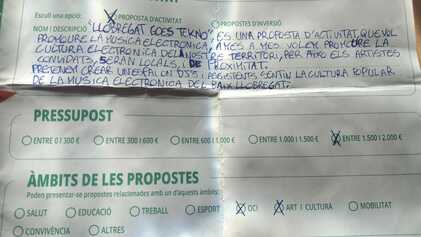 Escull una opció: PROPOSTA D'ACTIVITAT PROPOSTES D'INVERSIÓ
NOM I DESCRIPCIÓ "LLOBREGAT GOES TEKNO", ES UNA PROPOSTA D'ACTIVITAT, QUE VOL
PROMOURE LA MUSICA ELECTRONICA, A MES A MES, VOLEM PROMOURE LA
CULTURA ELECTRONICA DEL NOSTRE TERRITORI, PER AIXO ELS ARTISTES
CONVIDATS, SERAN LOCALS, I DE PROXIMITAT.
PRETENEM CREAR UN ESPAI ON DJS I ASSISTENTS SENTIN LA CULTURA POPULAR
DE LA MUSICA ELECTRONICA DEL BAIX LLOBREGAT.
PRESSUPOST
ENTRE 0 I 300 € ENTRE 300 I 600 € ENTRE 600 I 1.000 € ENTRE 1.000 I 1.500 € ENTRE 1.500 I 2.000 €
ÀMBITS DE LES PROPOSTES
Poden presentar-se propostes relacionades amb un d'aquests àmbits:
SALUT EDUCACIÓ TREBALL ESPORT OCI ART I CULTURA MOBILITAT
CONVIVÈNCIA ALTRES